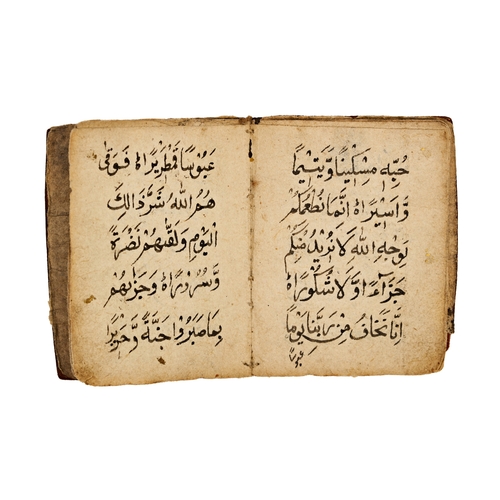 حُبِّهٖ مِسْكِيْنًا وَّيَتِيْمًا
وَّاَسِيْرًا ه اِنَّمَا نُطْعِمُكُمْ
لِوَجْهِ اللّٰهِ لَا نُرِيْدُ مِنْكُمْ
جَزَآءً وَّلَا شُكُوْرًا ه
اِنَّا نَخَافُ مِنْ رَّبِّنَا يَوْمًا
عبوسا
عَبُوْسًا قَمْطَرِيْرًا ه فَوَقٰى
هُمُ اللّٰهُ شَرَّ ذَالِكَ
الْيَوْمِ وَلَقّٰهُمْ نَضْرَةً
وَّسُرُوْرًا ه وَجَزٰىهُمْ
بِمَا صَبَرُوْا جَنَّةً وَّحَرِيْرًا